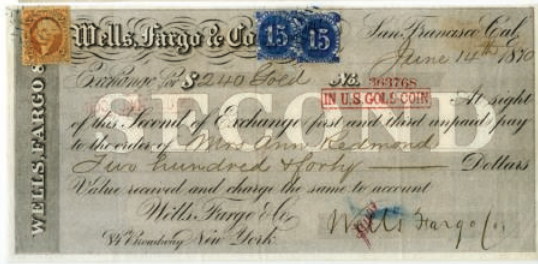 Wells, Fargo & Co
15 15
San Francisco Cal.
June 14th 1870
Exchange for $240 Gold No. 363768
IN U.S. GOLD COIN At sight
of this Second of Exchange first and third unpaid pay
to the order of Mrs Ann Redmond
Two hundred & forty Dollars
Value received and charge the same to account
Wells, Fargo & Co Wells Fargo Co
84 Broadway New York.
SECOND
WELLS, FARGO &